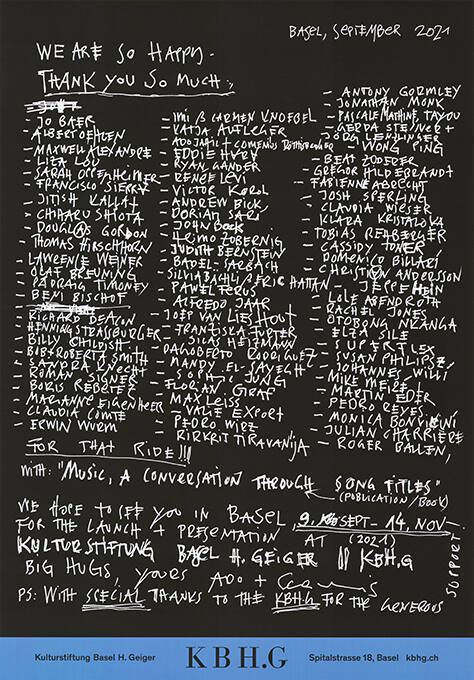 BASEL, SEPTEMBER 2021
WE ARE SO HAPPY -
THANK YOU SO MUCH:,
- JO BAER
- ALBERT OEHLEN
- MAXWELL ALEXANDRE
- LIZA LOU
- SARAH OPPENHEIMER
- FRANCISCO SIERRA
- JITISH KALLAT
- CHIHARU SHIOTA
- DOUGLAS GORDON
- THOMAS HIRSCHHORN
- LAWRENCE WEINER
- OLAF BREUNING
- PADRAIG TIMONEY
- BENI BISCHOF
- RICHARD DEACON
- HENNING STRASSBURGER
- BILLY CHILDISH
- BOB + ROBERTA SMITH
- SANDRA KNECHT
- ROMAN SIGNER
- BORIS REBETEZ
- MARIANNE EIGENHEER
- CLAUDIA COMTE
- ERWIN WURM
- IMI & CARMEN KNOEBEL
- KATJA AUFLEGER
- EDDIE HARA
- RYAN GANDER
- RENÉE LEVI
- VICTOR KOROL
- ANDREW BICK
- DORIAN SARI
- JOHN BOCK
- HEIMO ZOBERNIG
- JUDITH BERNSTEIN
- BADEL SARBACH
- SILVIA BÄCHLI, ERIC HATTAN
- PAWEL FERUS
- ALFREDO JAAR
- JOEP VAN LIESHOUT
- FRANZISKA FURTER
- SILAS HEIZMANN
- DAGOBERTO RODRIGUEZ
- MANDY EL-SAYEGH
- SOPHIE JUNG
- FLORIAN GRAF
- MAX LEISS
- VALIE EXPORT
- PEDRO WIRZ
- RIRKRIT TIRAVANIJA
- ANTONY GORMLEY
- JONATHAN MONK
- PASCALE MARTHINE TAYOU
- GERDA STEINER +
JÖRG LENZLINGER
- WONG PING
- BEAT ZODERER
- GREGOR HILDEBRANDT
- FABIENNE ABRECHT
- JOSH SPERLING
- CLAUDIA WIESER
- KLARA KRISTALOVA
- TOBIAS REHBERGER
- CASSIDY TONER
- DOMENICO BILLARI
- CHRISTIAN ANDERSSON
- JEPPE HEIN
- LOLE ABENDROTH
- RACHEL JONES
- OTOBONG NKANGA
- ELZA SILE
- SUPERFLEX
- SUSAN PHILIPSZ
- JOHANNES WILLI
- MIKE MEIRÉ
- MARTIN EDER
- PEDRO REYES
- MONICA BONVICINI
- JULIAN CHARRIÈRE
- ROGER BALLEN,
FOR THAT RIDE!!!
WITH: "MUSIC, A CONVERSATION THROUGH SONG TITLES"
(PUBLICATION / BOOK)
WE HOPE TO SEE YOU IN BASEL, 9. SEPT - 14. NOV -
FOR THE LAUNCH + PRESENTATION AT (2021)
KULTURSTIFTUNG BASEL H. GEIGER || KBH.G
BIG HUGS, YOURS ADO +
PS: WITH SPECIAL THANKS TO THE KBH.G FOR THE GENEROUS
SUPPORT
Kulturstiftung Basel H. Geiger
KBH.G
Spitalstrasse 18, Basel kbhg.ch